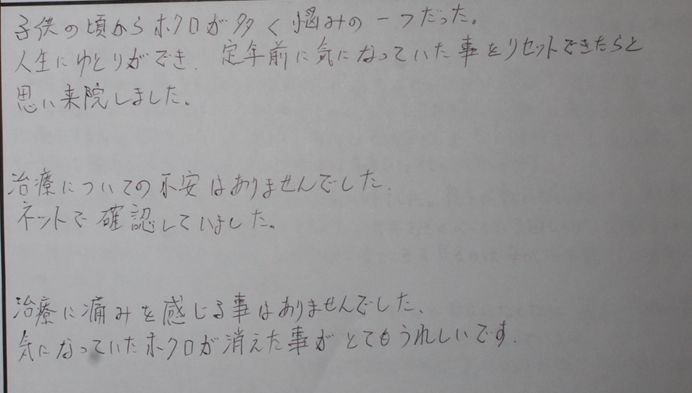 子供の頃からホクロが多く悩みの一つだった。
人生にゆとりができ、定年前に気になっていた事をリセットできたらと
思い来院しました。
治療についての不安はありませんでした。
ネットで確認していました。
治療に痛みを感じる事はありませんでした、
気になっていたホクロが消えた事がとてもうれしいです.